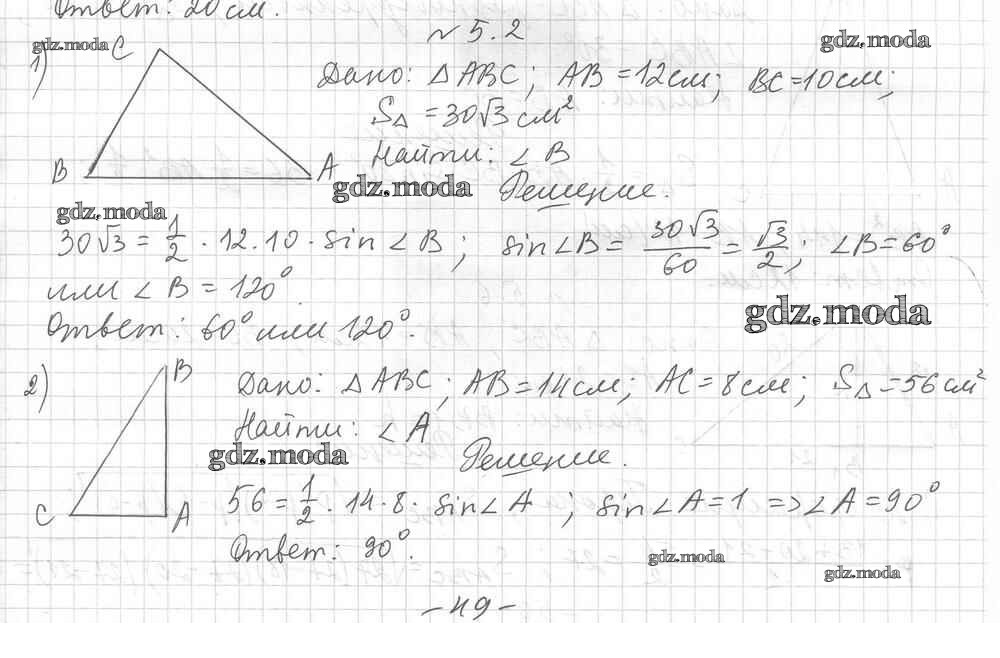 Ответ: 20 см.
№ 5.2
gdz.moda
gdz.moda
1)
C
B
A
Дано: △ABC; AB = 12 см; BC = 10 см;
S△ = 30√3 см²
Найти: ∠B
gdz.moda
Решение.
gdz.moda
30√3 = 1/2 · 12 · 10 · sin∠B; sin∠B = 30√3/60 = √3/2; ∠B = 60°
или ∠B = 120°.
gdz.moda
Ответ: 60° или 120°.
2)
B
C
A
Дано: △ABC; AB = 14 см; AC = 8 см; S△ = 56 см²
Найти: ∠A
gdz.moda
Решение.
56 = 1/2 · 14 · 8 · sin∠A; sin∠A = 1 => ∠A = 90°
Ответ: 90°.
gdz.moda
gdz.moda
- 49 -